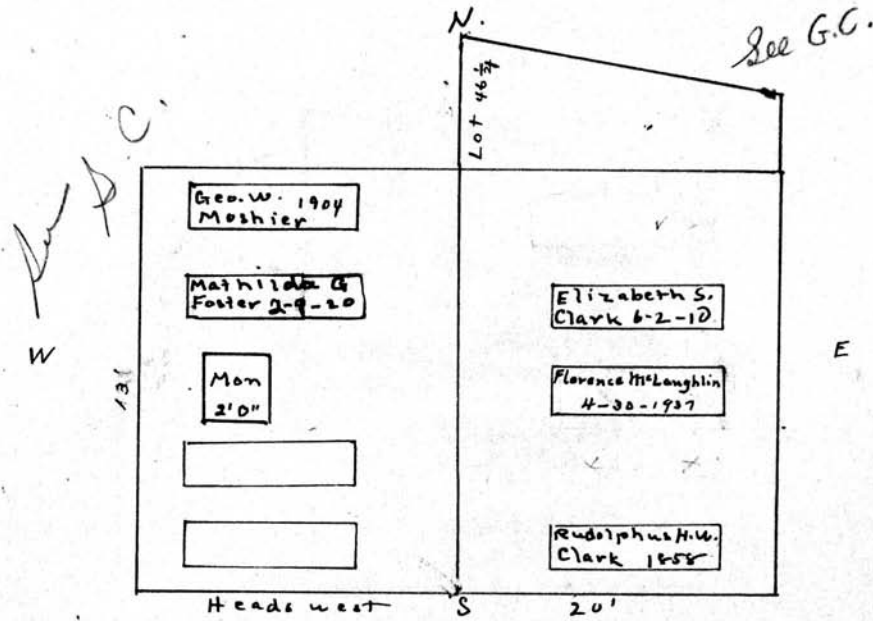 N.
See G.C.
Lot 46 1/2
See G.C.
Geo. W. 1904
Moshier
Mathilda G
Foster 2-9-20
W
13'
Mon
2'0"
Elizabeth S.
Clark 6-2-10
E
Florence McLaughlin
4-30-1937
Rudolphus H.W.
Clark 1858
Heads west
S
20'